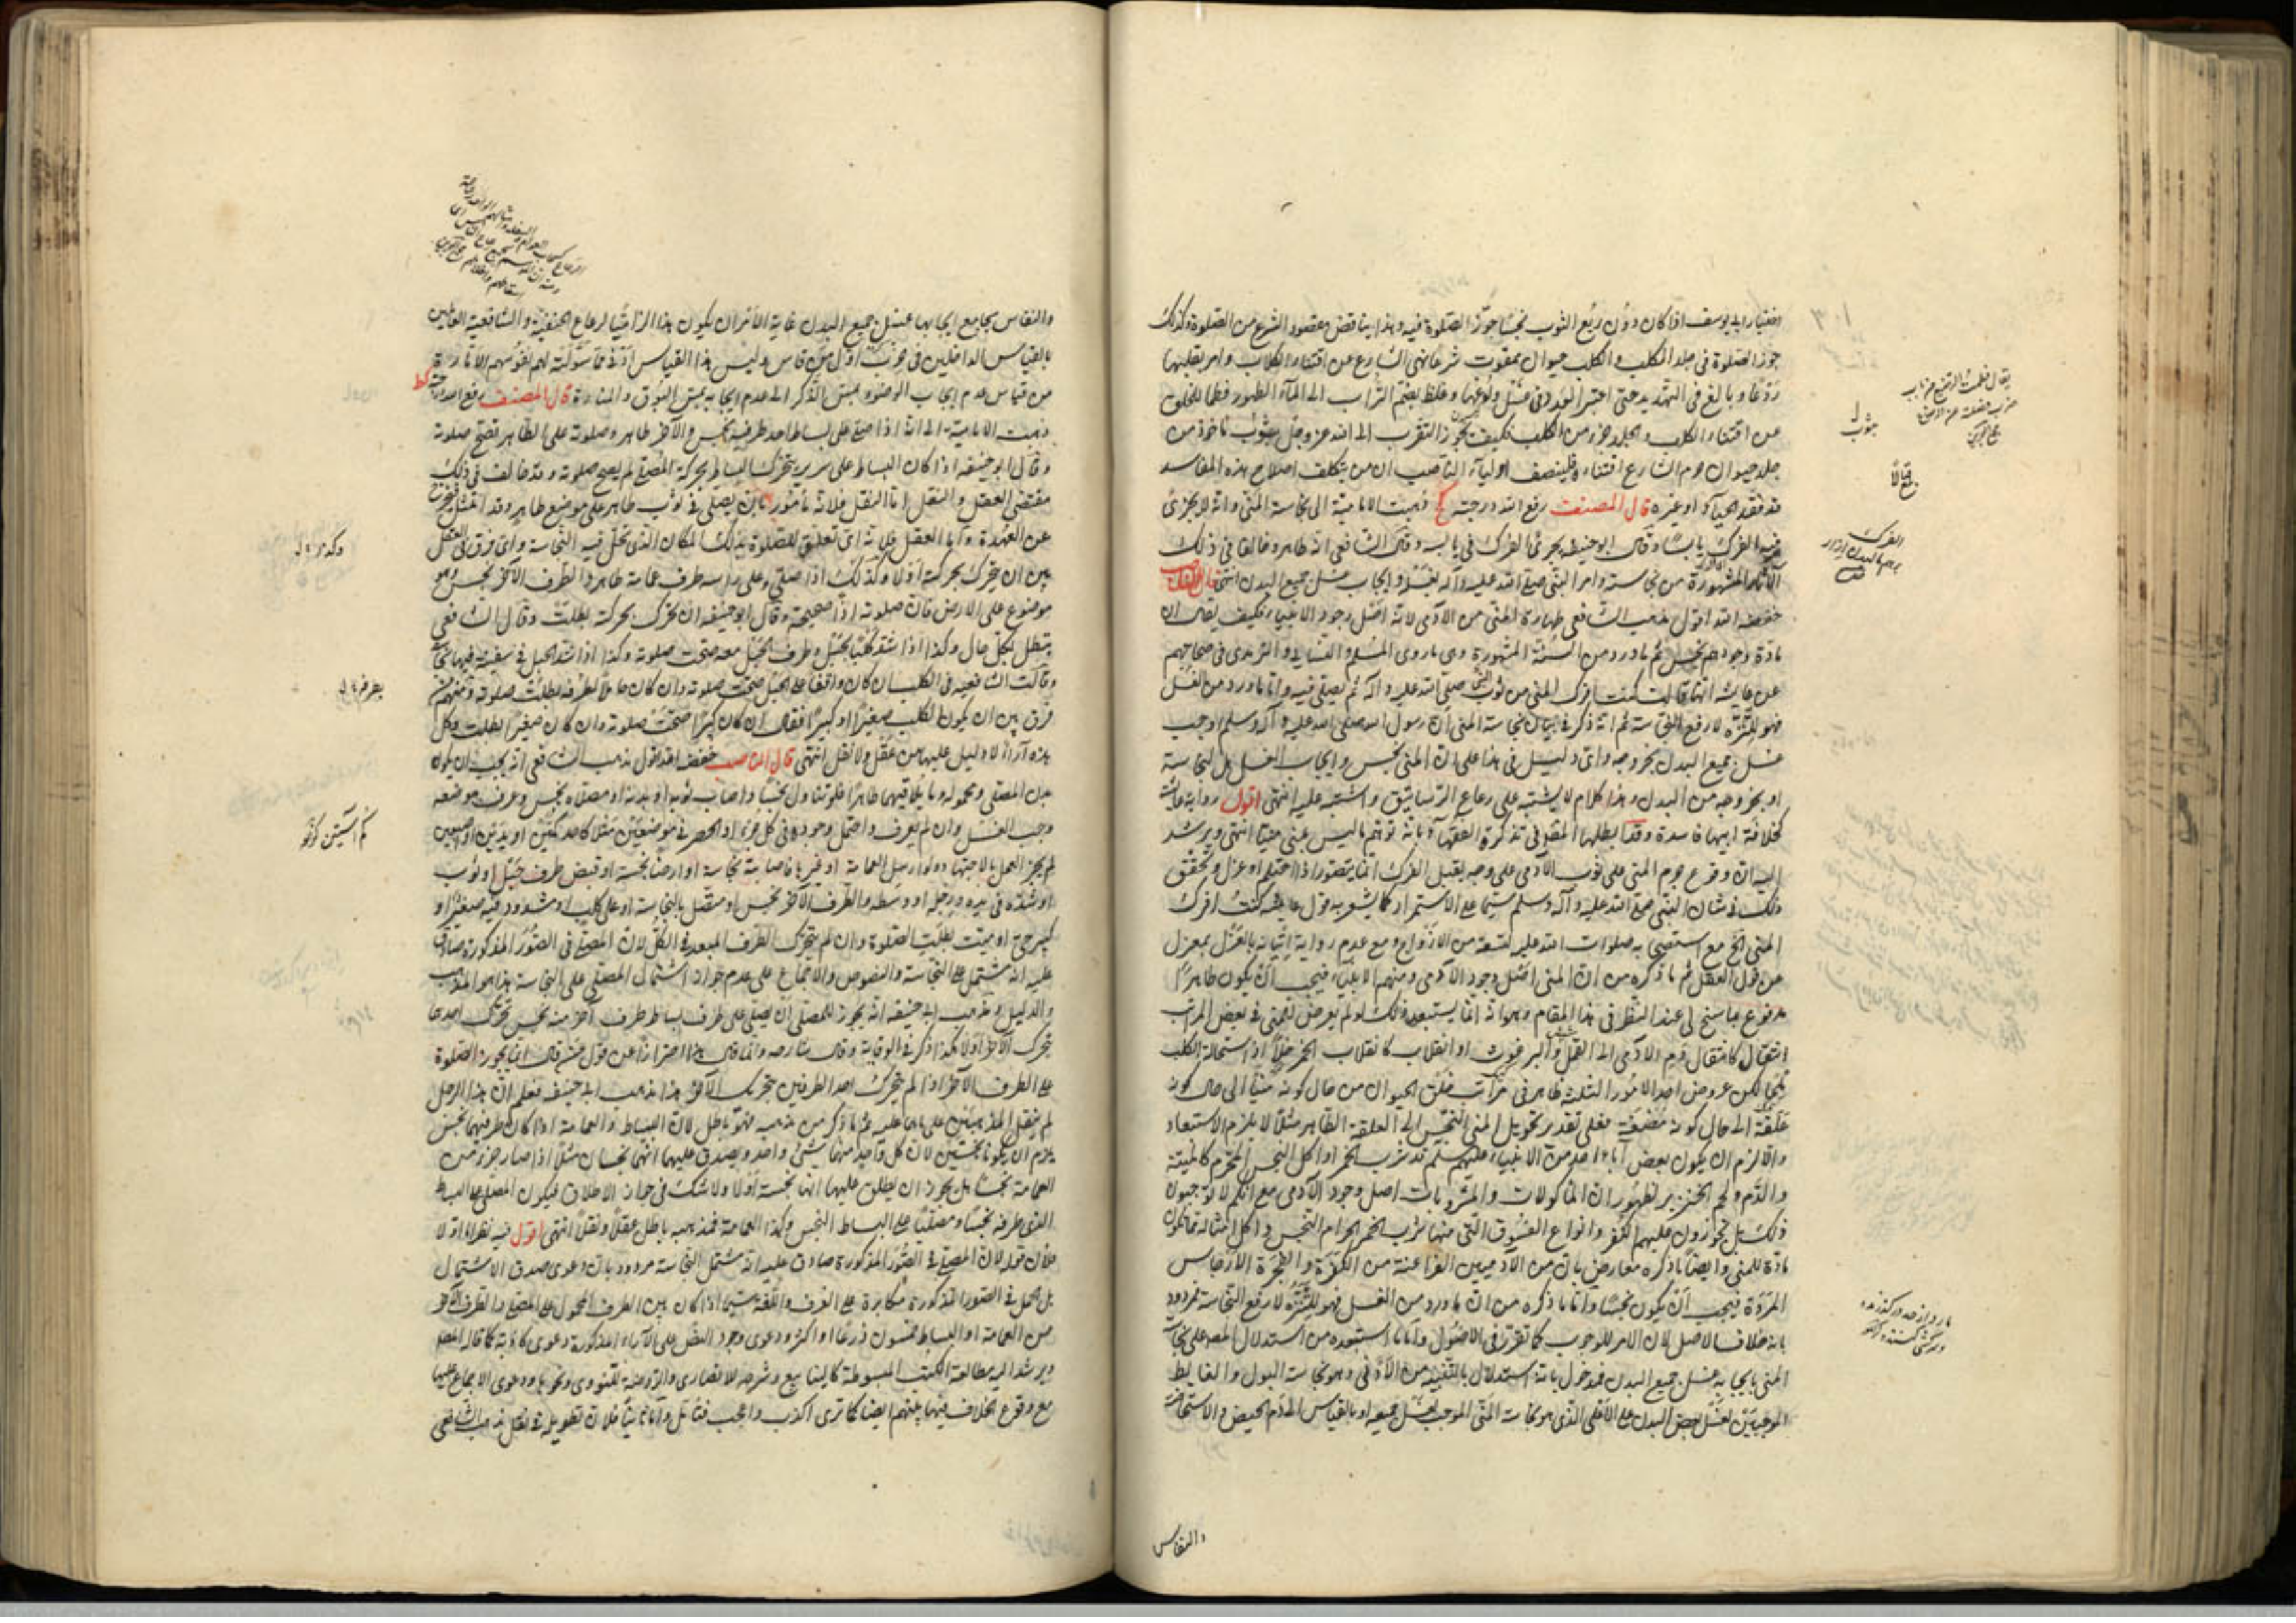 اختيار ابي يوسف اذا كان دون ربع الثوب نجسا جوز الصلوة فيه وهذا يناقض مقصود الشرع من الصلوة وكذلك
جوز الصلوة فى جلد الكلب والكلب حيوان ممقوت شرعا نهى الشارع عن اقتناء الكلاب وامر بقتلها
ردعا وبالغ فى التهديد حتى اعتبر العدد فى غسل ولوغها وغلظ بضم التراب الى الماء الطهور فطما للخلق
عن اقتناء الكلب والجلد جزء من الكلب فكيف يجوز التقرب الى الله عز وجل بثوب مأخوذ من
جلد حيوان حرم الشارع اقتناءه فلينصف اولياء الناصب ان من يتكلف اصلاح هذه المفاسد
قد فقد الحياء او غيره قال المصنف رفع الله درجته ذهبت الامامية الى نجاسة المنى وانه لا يجزئ
فيه الفرك يابسا وقال ابو حنيفة يجزئ الفرك فى يابسه وقال الشافعى انه طاهر وخالفا فى ذلك
المشهورة من نجاسته وامر النبى صلى الله عليه وآله بغسله وايجاب غسل جميع البدن انتهى قال الناصب
خفضه الله اقول مذهب الشافعى طهارة المنى من الآدمى لانه اصل وجود الانبياء فكيف يقال ان
مادة وجودهم نجس ثم ما ورد من السنة المشهورة وهى ما روى المسلم والنسائى والترمذى فى صحاحهم
عن عايشه انها قالت كنت افرك المنى من ثوب النبى صلى الله عليه وآله ثم يصلى فيه واما ما ورد من الغسل
فهو للتنزه لا رفع النجاسة ثم انه ذكر فى بيان نجاسة المنى ان رسول الله صلى الله عليه وآله وسلم اوجب
غسل جميع البدن بخروجه واى دليل فى هذا على ان المنى نجس وايجاب الغسل هل لنجاسته
او بخروجه من البدن وهذا كلام لا يشتبه على رعاع الرساتيق واشتبه عليه انتهى اقول رواية عايشة
كخلافة ابيها فاسدة وقد ابطلها المصنف فى تذكرة الفقهاء بانه توهم ما ليس بمنى منيا انتهى ويرشد
اليه ان وقوع جرم المنى على ثوب الآدمى على وجه يقبل الفرك انما يتصور اذا احتلم او عزل وتحقق
ذلك فى شان النبى صلى الله عليه وآله وسلم سيما على الاستمرار كما يشعر به قول عايشه كنت افرك
المنى الخ مع استصحابه صلوات الله عليه لتسعة من الازواج ومع عدم رواية اتيانه بالعزل بمعزل
عن قول العقل ثم ما ذكره من ان المنى اصل وجود الآدمى ومنهم الانبياء فيجب ان يكون طاهرا
مدفوع بما سنح لى عند النظر فى هذا المقام وهو انه انما يستبعد ذلك لو لم يعرض للمنى فى بعض المراتب
انتقال كانتقال دم الآدمى الى القمل والبرغوث او انقلاب كانقلاب الخمر خلا او استحالة الكلب
ملحا لكن عروض احد الامور الثلثة ظاهر فى مرآت خلق الحيوان من حال كونه منيا الى حال كونه
علقة الى حال كونه مضغة فعلى تقدير تحويل المنى النجس الى العلقة الطاهر مثلا لا يلزم الاستبعاد
والا لزم ان يكون بعض آباء احد من الانبياء عليهم السلم قد شرب الخمر او اكل النجس المحرم كالميتة
والدم ولحم الخنزير لظهور ان المأكولات والمشروبات اصل وجود الآدمى مع انكم لا توجبون
ذلك بل تجوزون عليهم الكفر وانواع الفسوق التى منها شرب الخمر الحرام النجس واكل امثاله مما يكون
مادة للمنى وايضا ما ذكره معارض بان من الآدميين الفراعنة من الكفرة والفجرة الارجاس
المردة فيجب ان يكون نجسا واما ما ذكره من ان ما ورد من الغسل فهو للتنزه لا رفع النجاسة فمردود
بانه خلاف الاصل لان الامر للوجوب كما تقرر فى الاصول واما ما استبعده من استدلال المصنف على نجاسة
المنى بايجابه غسل جميع البدن فمدخول بانه استدلال بالتنبيه من الادنى وهو نجاسة البول والغايط
الموجبتين لغسل بعض البدن على الاعلى الذى هو نجاسة المنى الموجب لغسل جميعه او بالقياس الى دم الحيض والاستحاضة
والنفاس
والنفاس بجامع ايجابها غسل جميع البدن غاية الامر ان يكون هذا الزاميا لرعاع الحنفية والشافعية العاملين
بالقياس الداخلين فى حزب اول من قاس وليس هذا القياس ادنى مما سولته لهم نفوسهم الامارة
من قياس عدم ايجاب الوضوء بمس الذكر الى عدم ايجابه بمس البوق والمنارة قال المصنف رفع الله درجته كط
ذهبت الامامية الى انه اذا صلى على بساط احد طرفيه نجس والآخر طاهر وصلوته على الطاهر تصح صلوته
وقال ابو حنيفه اذا كان البساط على سرير يتحرك البساط بحركة المصلى لم يصح صلوته وقد خالف فى ذلك
مقتضى العقل والنقل اما النقل فلانه مأمور بان يصلى فى ثوب طاهر على موضع طاهر وقد امتثل فيخرج
عن العهدة واما العقل فلانه اى تعلق للصلوة بذلك المكان الذى تحل فيه النجاسة واى فرق فى العقل
بين ان يتحرك بحركته اولا وكذلك اذا صلى وعلى راسه طرف عمامة طاهر والطرف الآخر نجس وهو
موضوع على الارض فان صلوته اذا صحيحة وقال ابو حنيفه ان تحرك بحركته بطلت وقال الشافعى
يبطل بكل حال وكذا اذا شد كلبا بحبل وطرف الحبل معه صحت صلوته وكذا اذا شد الحبل فى سفينة فيها نجاسة
وقالت الشافعيه فى الكلب ان كان واقفا على الحبل صحت صلوته وان كان حاملا لطرفه بطلت صلوته ومنهم من
فرق بين ان يكون الكلب صغيرا او كبيرا فقال ان كان كبيرا صحت صلوته وان كان صغيرا بطلت وكل
هذه آراء لا دليل عليها من عقل ولا نقل انتهى قال الناصب خفضه الله اقول مذهب الشافعى انه يجب ان يكون
بدن المصلى ومحموله وما يلاقيهما طاهرا فلو تناول نجسا واصاب ثوبه او بدنه او مصلاه نجس وعرف موضعه
وجب الغسل وان لم يعرف واحتمل وجوده فى كل جزء او الحصر فى موضعين مثلا كاحد كمين او يدين او اصبعين
لم يجز العمل بالاجتهاد ولو ارسل العمامة او غيرها فاصابته نجاسة او ارضا نجسة او قبض طرف حبل او ثوب
او شده فى يده ورجله او وسطه والطرف الآخر نجس او متصل بالنجاسة او على كلب او مشدود فيه صغيرا او
كبير حى او ميت بطلت الصلوة وان لم يتحرك الطرف المبعد فى الكل لان المصلى فى الصور المذكورة صادق
عليه انه مشتمل على النجاسة والنصوص والاجماع على عدم جواز اشتمال المصلى على النجاسة هذا هو المذهب
والدليل ومذهب ابى حنيفه انه يجوز للمصلى ان يصلى على طرف بساط طرف آخر منه نجس تحرك احدهما
بتحرك الآخر او لا هكذا ذكر فى الوقاية وقال شارحه وانما قال هذا احترازا عن قول من قال انما يجوز الصلوة
على الطرف الآخر اذا لم يتحرك احد الطرفين بتحريك الآخر هذا مذهب ابى حنيفه فعلم ان هذا الرجل
لم ينقل المذهبين على ما هما عليه ثم ما ذكر من مذهبه فهو باطل لان البساط والعمامة اذا كان طرفيهما نجس
يلزم ان يكونا نجستين لان كل واحد منهما شىء واحد ويصدق عليهما انهما نجسان مثلا اذا صار جزء من
العمامة نجسا هل يجوز ان يطلق عليها انها نجسة اولا ولا شك فى جواز الاطلاق فيكون المصلى على البساط
الذى طرفه نجسا مصليا على البساط النجس وكذا العمامة فمذهبه باطل عقلا ونقلا انتهى اقول فيه نظر اما اولا
فلان قوله لان المصلى فى الصور المذكورة صادق عليه انه مشتمل النجاسة مردود بان دعوى صدق الاشتمال
بل الحمل فى الصور المذكورة مكابرة على العرف واللغة سيما اذا كان بين الطرف المحمول على المصلى والطرف الآخر
من العمامة او البساط خمسون ذرعا او اكثر ودعوى وجود النص على الآراء المذكورة دعوى كاذبة كما قاله المصنف
ويرشد اليه مطالعة الكتب المبسوطة كالينابيع وشرحه للانصارى والروضة للنووى ونحوها ودعوى الاجماع عليها
مع وقوع الخلاف فيها بينهم ايضا كما ترى اكذب واعجب فتأمل واما ثانيا فلان تطويله فى نقل مذهب الشافعى